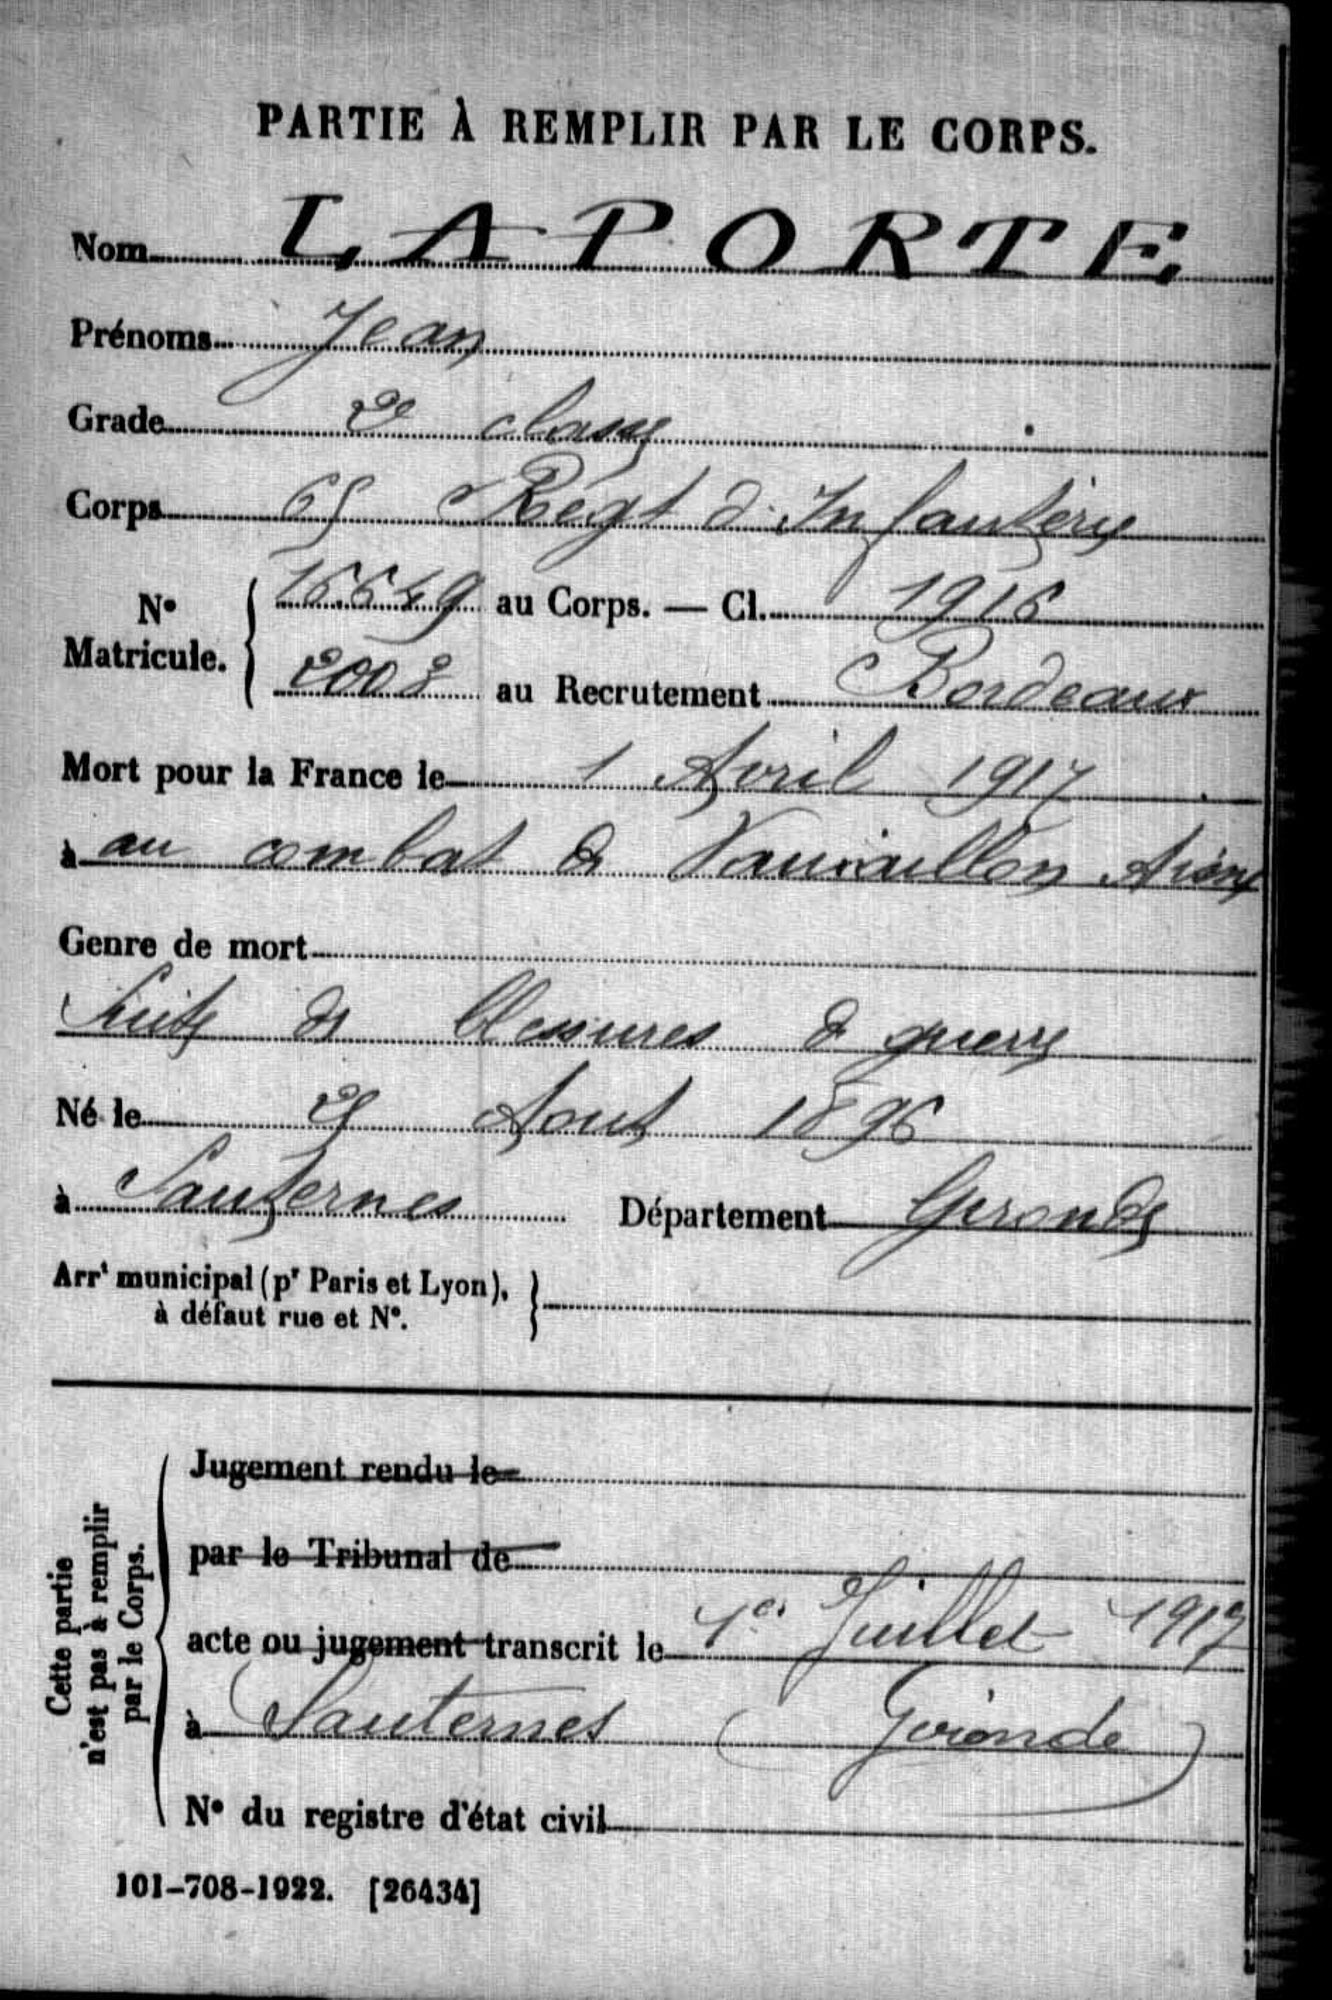 PARTIE À REMPLIR PAR LE CORPS.
Nom LAPORTE
Prénoms Jean
Grade 2e classe
Corps 65 Régt d'Infanterie
No Matricule. { au Corps. — Cl. 1916
2008 au Recrutement Bordeaux
Mort pour la France le 1 Avril 1917
à au combat de Vauxaillon Aisne
Genre de mort
Suite de blessures de guerre
Né le Aout 1896
à Sauternes Département Gironde
Arrt municipal (pr Paris et Lyon),
à défaut rue et No. }
Cette partie
n'est pas à remplir
par le Corps.
Jugement rendu le
par le Tribunal de
acte ou jugement transcrit le 1er Juillet 1917
à Sauternes (Gironde)
No du registre d'état civil
101-708-1922. [26434]